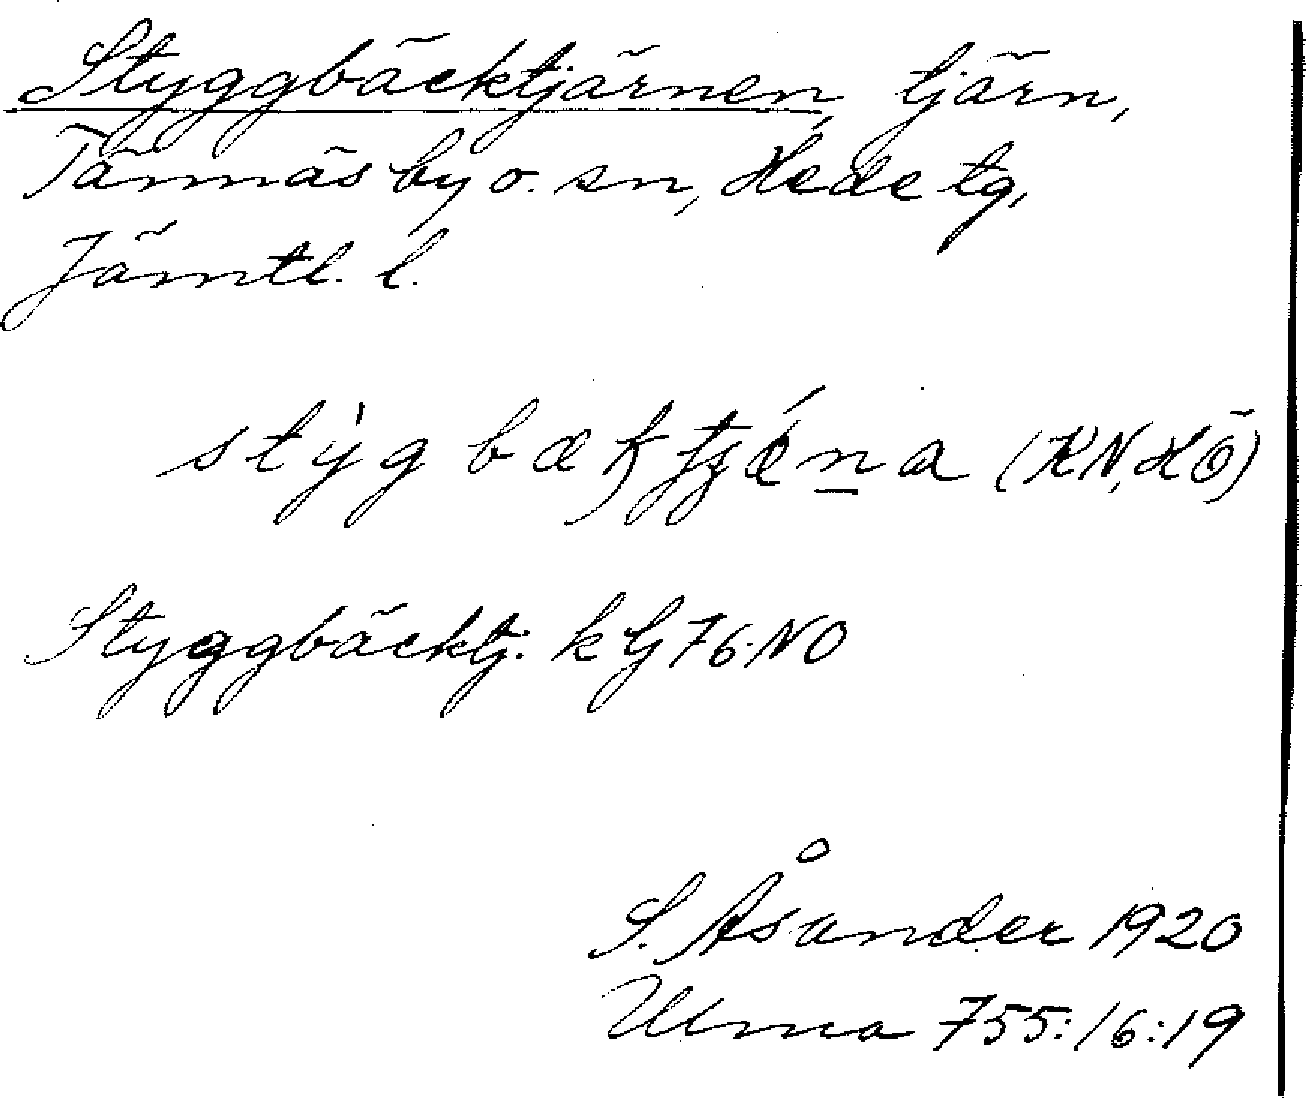 Styggbäcktjärnen, tjärn,
Tännäs by o. sn, Hede tg,
Jämtl. l.
(KN, HÖ)
Styggbäcktj. k G 76 NO
S. Åsander 1920
Ulma 755:16:19